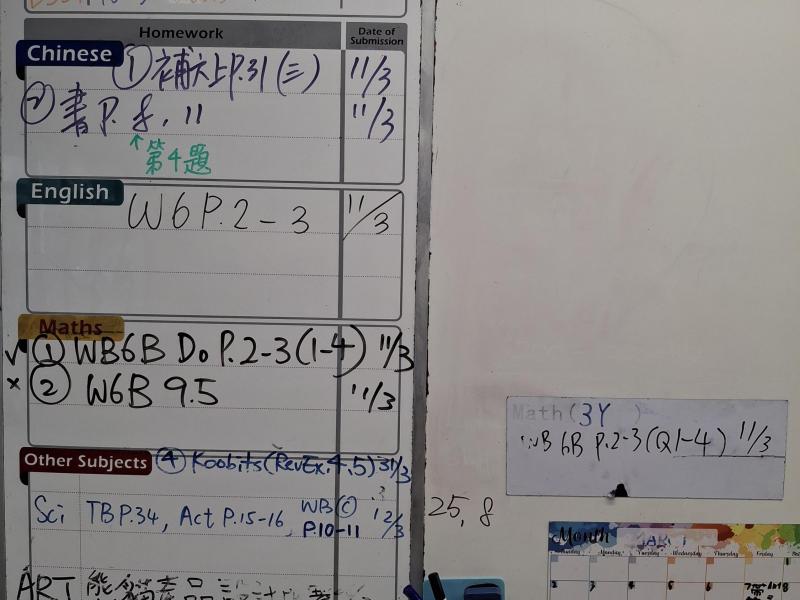 Homework
Date of Submission
Chinese
① 補充上P.31 (三) 11/3
② 書 P. 8, 11 11/3
↑第4題
English
W6 P.2-3 11/3
Maths
✓ ① WB6B Do P.2-3(1-4) 11/3
× ② W6B 9.5 11/3
Other Subjects
④ Koobits(RevEx.4,5) 31/3
Sci TB P.34, Act P.15-16, WB© P.10-11 12/3
ART 能
25, 8
Math(3Y )
WB 6B P.2-3(Q1-4) 11/3
Month